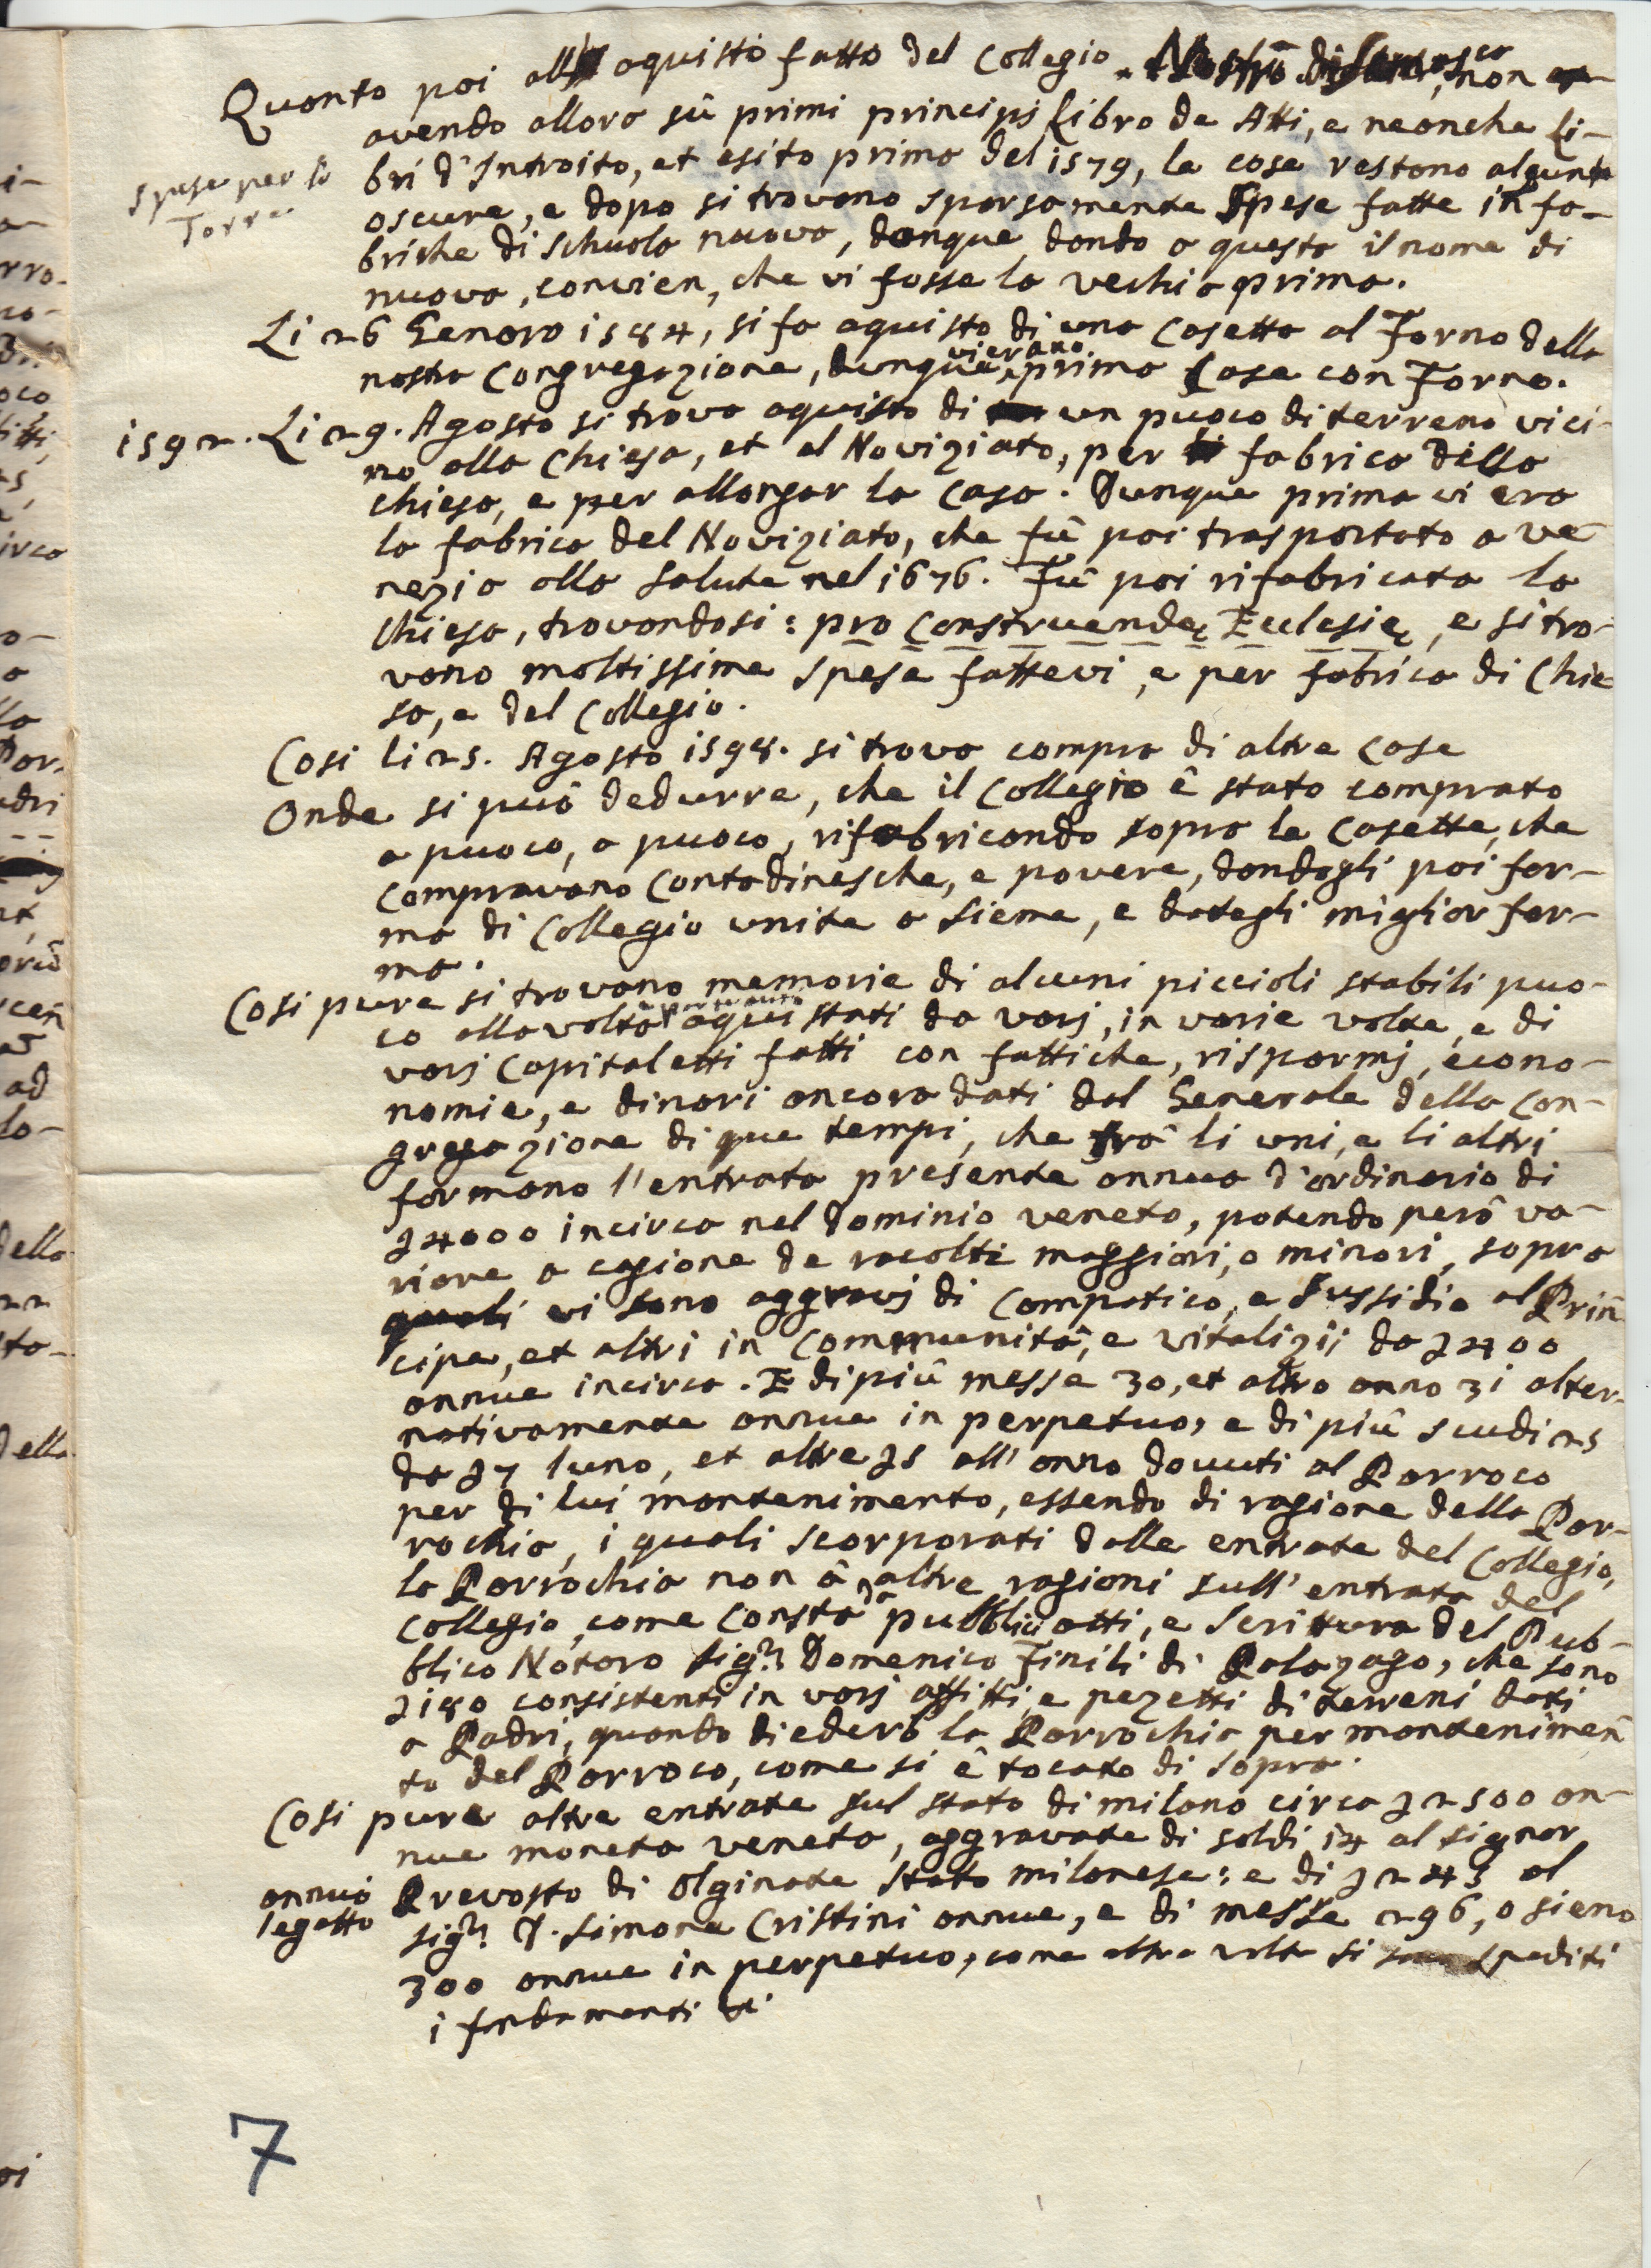 Quanto poi all aquisto fatto del Collegio non
avendo allora sû primi principj Libro de Atti, e neanche Li-
bri d'Introito, et esito prima del 1579, le cose restano alqunto
spese per la
Torre
oscure, e dopo si trovano sparsamente Spese fatte in fa-
briche di Schuola nuova, donque dando a questa il nome di
nuova, convien, che vi fosse la vechia prima.
Li 26 Genaro 1584, si fa aquisto di una Casetta al Forno della
nostra Congregazione, dunque vi erano prima Case con Forno.
1592. Li 29. Agosto si trova aquisto di un puoco di terreno vici-
no alla Chiesa, et al Noviziato, per fabrica della
chiesa, e per allongar la Casa. Dunque prima vi era
la fabrica del Noviziato, che fû poi trasportato a Ve-
nezia alla Salute nel 1676. Fû poi rifabricata la
Chiesa, trovandosi: pro Construendę Ecclesię, e si tro-
vano moltissime spese fattevi, e per fabrica di Chie
sa, e del Collegio.
Cosi li 25. Agosto 1598. si trova compra di altre Case
Onde si può dedurre, che il Collegio ê stato comprato
a puoco, a puoco, rifabricando sopra le Casette, che
compravano Contadinesche, e povere, dandogli poi for-
ma di Collegio unite a sieme, e dategli miglior for-
ma.
Cosi pure si trovano memorie di alcuni piccioli stabili puo-
co alla volta aquistati da varj, in varie volte, e di
varj Capitaletti fatti con fattiche, risparmj, econo-
nomie, e dinari ancora dati dal Generale della Con-
gregazione di que tempi, che trâ li uni, e li altri
formano l'entrata presente annua d'ordinario di
£4000 incirca nel Dominio veneto, potendo però va-
riare a cagione de racolti maggiori, o minori, sopra
quali vi sono aggravj di Campatico, e Sussidio al Prin̄
cipe, et altri in Communità, e vitalizii da £400
annue incirca. E di piû messe 30, et altro anno 31 alter-
nativamente annue in perpetuo, e di piû scudi 25
da £7 luno, et altre £5 all'anno dovuti al Parroco
per di lui mantenimento, essendo di ragione della Par-
rochia, i quali scorporati dalle entrate del Collegio,
la Parrochia non â altre ragioni sull'entrata del
Collegio, come Consta da publici atti, e Scrittura del Pub-
blico Notaro Sig.r Domenico Finili di Palazago, che sono
£180 consistenti in varj affitti, e pezetti di terreni dati
a Padri, quando diederô la Parrochia per mantenimen̄
to del Parroco, come si ê tocato di sopra.
Cosi pure altre entrate sul stato di milano circa £2500 an-
nue moneta veneta, aggravate di soldi 14 al signor
annuo
legatto
Prevosto di Olginate Stato milanese: e di £243 al
sig.r D. Simone Cristini annue, e di messe 296, o sieno
300 annue in perpetuo, come altra volta si spediti
i fondamenti
7